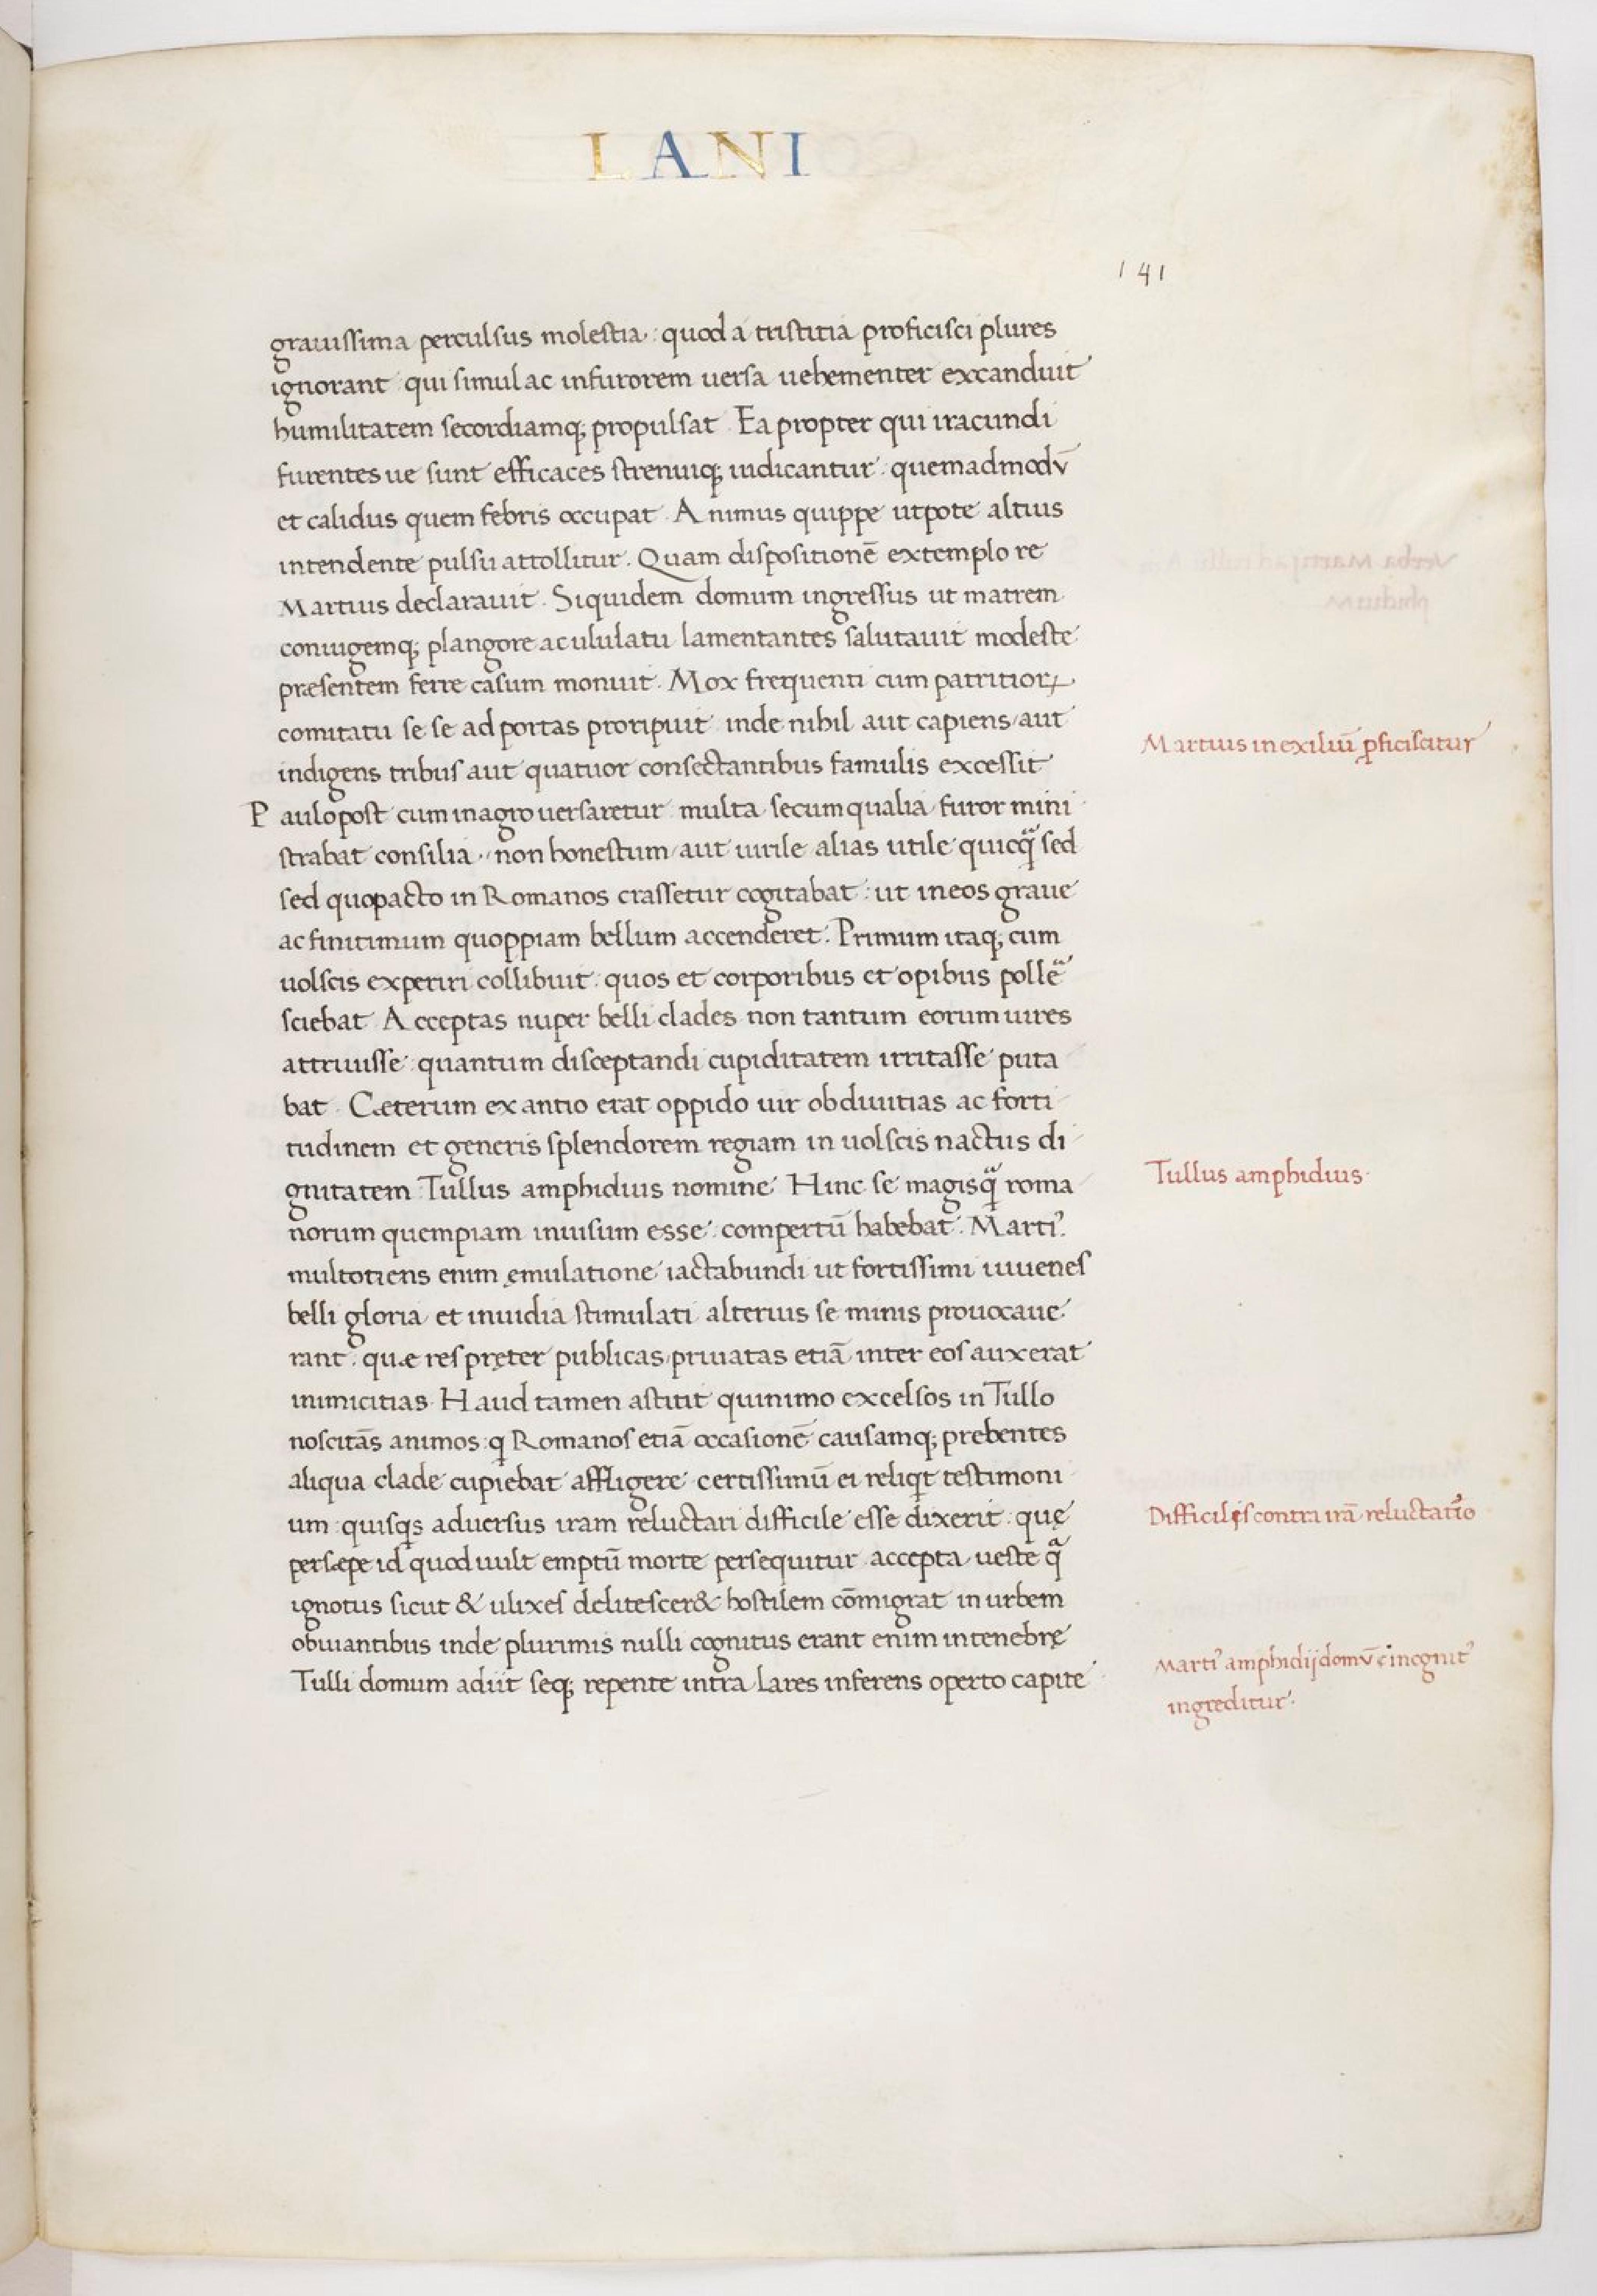 LANI
141
grauissima perculsus molestia: quod a tristitia proficisci plures
ignorant qui simul ac infurorem uersa uehementer excanduit
humilitatem secordiamq; propulsat. Ea propter qui iracundi
furentes ue sunt efficaces strenuiq; iudicantur: quemadmodū
et calidus quem febris occupat. Animus quippe utpote altius
intendente pulsu attollitur. Quam dispositionē extemplo re
Martius declarauit. Siquidem domum ingressus ut matrem
coniugemq; plangore ac ululatu lamentantes salutauit modeste
præsentem ferre casum monuit. Mox frequenti cum patritioꝝ
comitatu se se ad portas proripuit inde nihil aut capiens/aut
indigens tribus aut quatuor consectantibus famulis excessit
Martius in exiliū ꝓficiscitur
Paulo post cum in agro uersaretur multa secum qualia furor mini
strabat consilia, non honestum/aut uirile alias utile quicq̄ sed
sed quopacto in Romanos crassetur cogitabat: ut in eos graue
ac finitimum quoppiam bellum accenderet. Primum itaq; cum
uolscis experiri collibuit: quos et corporibus et opibus pollē
sciebat. Acceptas nuper belli clades non tantum eorum uires
attriuisse: quantum disceptandi cupiditatem irritasse puta
bat. Cæterum ex antio erat oppido uir ob diuitias ac forti
tudinem et generis splendorem regiam in uolscis nactus di
gnitatem Tullus amphidius nomine. Hinc se magisq̄ roma
Tullus amphidius.
norum quempiam inuisum esse: compertū habebat. Marti⁹.
multotiens enim ęmulatione iactabundi ut fortissimi iuuenes
belli gloria et inuidia stimulati alterius se minis prouocaue
rant: quæ res pręter publicas/priuatas etiā inter eos auxerat
inimicitias. Haud tamen astitit quinimo excelsos in Tullo
noscitās animos: ꝙ Romanos etiā occasionē causamq; prebentes
aliqua clade cupiebat affligere certissimū ei reliqͥt testimoni
um: quisqͥs aduersus iram reluctari difficile esse dixerit: quę
Difficilis contra irā reluctatio
persæpe id quod uult emptū morte persequitur accepta ueste q̄
ignotus sicut & ulixes delitescer& hostilem cōmigrat in urbem
obuiantibus inde plurimis nulli cognitus erant enim in tenebrę
Tulli domum adiit seq; repente intra lares inferens operto capite
Marti⁹ amphidij domū icognit⁹
ingreditur.